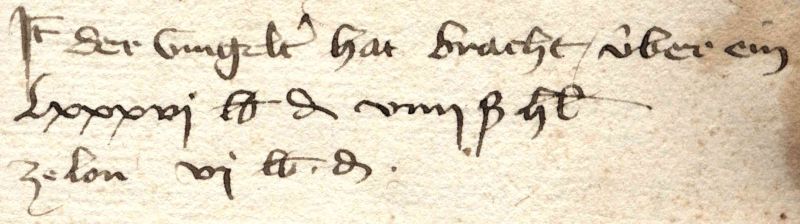 It der vmgelt' hat bracht / v̊ber ein
lxxxvj lb d viiij ß hl
ze lon vj lb. d.